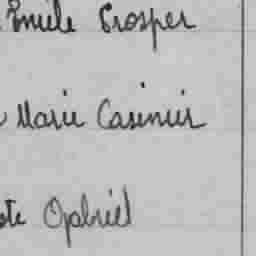 Emile Prosper
Marie Casimir
Gabriel